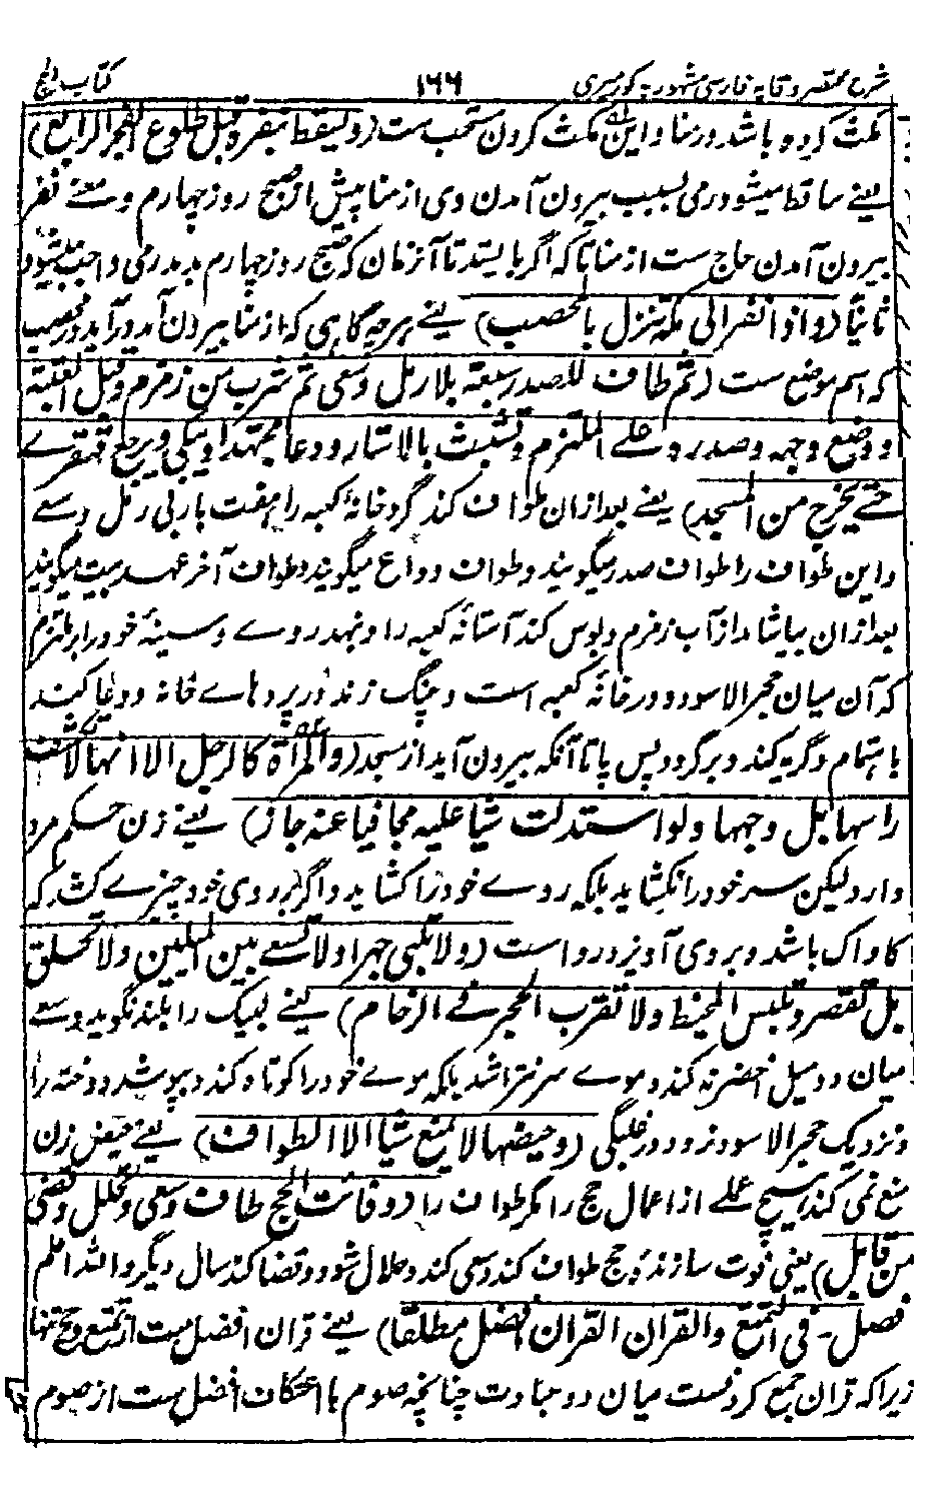 شرح مختصر وقایه فارسی مشهور به کورمیری ۱۶۶ کتاب الحج
مکث کرده باشد در منا و این مکث کردن مستحب ست (ویسقط بنفره قبل طلوع الفجر الرابع)
یعنے ساقط میشود رمی بسبب بیرون آمدن وی از منا پیش از صبح روز چهارم و معنے نفر
بیرون آمدن حاج ست از منا تا که اگر بایستد تا آنزمان که صبح روز چهارم بدمد رمی واجب میشود
ثانیًا (واذا نفر الی مکة نزل بالمحصب) یعنے هرچه گاهی که از منا بیرون آمد در آید در محصب
که اسم موضع ست (ثم طاف للصدر سبعة بلا رمل وسعی ثم شرب من زمزم وقبل العتبة
ووضع وجهه وصدره علے الملتزم وتشبث بالاستار ودعا مجتهدا ویبکی ویرجع قهقرے
حتے یخرج من المسجد) یعنے بعد ازان طواف کند گرد خانهٔ کعبه را هفت بار بی رمل و سے
واین طواف را طواف صدر میگویند وطواف وداع میگویند وطواف آخر عهد ببیت میگویند
بعد ازان بیاشامد از آب زمزم وبوس کند آستانهٔ کعبه را وبنهد روے وسینهٔ خود را بر ملتزم
که آن میان حجر الاسود ودر خانهٔ کعبه است وچنگ زند در پردهاے خانه ودعا کند
باهتمام وگریه کند وبرگردد پس پا تا آنکه بیرون آید از مسجد (والمرأة کالرجل الا انها لا تکشف
راسها بل وجهها ولو استدلت شیا علیه مجافیا عنه جاز) یعنے زن حکم مرد
دارد لیکن سر خود را نکشاید بلکه روے خود را کشاید واگر بر روی خود چیزے کشد که
کاواک باشد وبروی آویزد رواست (ولا تلبی جهرا ولا تسعے بین المیلین ولا تحلق
بل تقصر وتلبس المخیط ولا تقرب الحجر فے الزحام) یعنے لبیک را بلند نگوید وسعے
میان دو میل اخضر نه کند وموے سر نتراشد بلکه موے خود را کوتاه کند وبپوشد دوخته را
ونزدیک حجر الاسود نرود در غلبگی (وحیضها لا یمنع شیا الا الطواف) یعنے حیض زن
منع نمی کند هیچ عملے از اعمال حج را مگر طواف را (وفائت الحج طاف وسعی وتحلل وقضی
من قابل) یعنی فوت سازندهٔ حج طواف کند وسعی کند وحلال شود وقضا کند سال دیگر والله اعلم
فصل فی التمتع والقران القران افضل مطلقًا) یعنے قران افضل ست از تمتع وحج تنها
زیراکه قران جمع کردنست میان دو عبادت چنانچه صوم با اعتکاف افضل ست از صوم